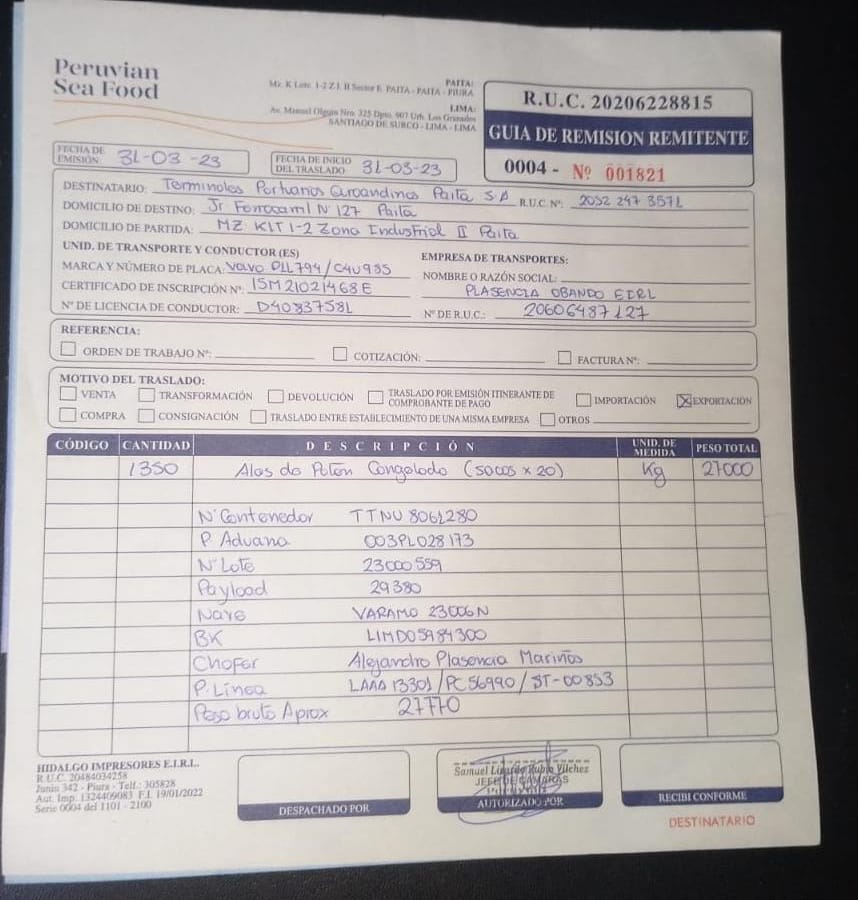 Peruvian
Sea Food
PAITA:
Mz. K Lote. 1-2 Z.I. II Sector E PAITA - PAITA - PIURA
LIMA:
Av. Manuel Olguin Nro. 325 Dpto. 907 Urb. Los Granados
SANTIAGO DE SURCO - LIMA - LIMA
R.U.C. 20206228815
GUIA DE REMISION REMITENTE
0004 - Nº 001821
FECHA DE EMISIÓN: 31-03-23
FECHA DE INICIO DEL TRASLADO 31-03-23
DESTINATARIO: Terminales Portuarios Euroandinos Paita S A R.U.C. Nº: 2052 247 3571
DOMICILIO DE DESTINO: Jr Ferrocarril Nº 127 Paita
DOMICILIO DE PARTIDA: MZ K LT 1-2 Zona Industrial II Paita
UNID. DE TRANSPORTE Y CONDUCTOR (ES) EMPRESA DE TRANSPORTES:
MARCA Y NÚMERO DE PLACA: Volvo PLL794/C4U985 NOMBRE O RAZÓN SOCIAL:
CERTIFICADO DE INSCRIPCIÓN Nº: 15M21021468E PLASENCIA OBANDO EIRL
Nº DE LICENCIA DE CONDUCTOR: D40837581 Nº DE R.U.C.: 20606487127
REFERENCIA:
ORDEN DE TRABAJO Nº: COTIZACIÓN: FACTURA Nº:
MOTIVO DEL TRASLADO:
VENTA TRANSFORMACIÓN DEVOLUCIÓN TRASLADO POR EMISIÓN ITINERANTE DE COMPROBANTE DE PAGO IMPORTACIÓN EXPORTACIÓN
COMPRA CONSIGNACIÓN TRASLADO ENTRE ESTABLECIMIENTO DE UNA MISMA EMPRESA OTROS
CÓDIGO CANTIDAD DESCRIPCIÓN UNID. DE MEDIDA PESO TOTAL
1350 Alas de Potón Congelado (sacos x 20) Kg 27000
Nº Contenedor TTNU 8061280
P. Aduana 003PL028173
Nº Lote 23000559
Payload 29380
Nave VARAMO 23006N
BK LIMD05984300
Chofer Alejandro Plasencia Mariños
P. Linea LAAA13301/PC56990/ST-00853
Peso bruto Aprox 27770
HIDALGO IMPRESORES E.I.R.L.
R.U.C. 20484034258
Junin 342 - Piura - Telf.: 305828
Aut. Imp. 1324409083 F.I. 19/01/2022
Serie 0004 del 1101 - 2100
DESPACHADO POR
Samuel Lizardo Rubio Vilchez
JEFE DE CAMARAS
AUTORIZADO POR
RECIBI CONFORME
DESTINATARIO